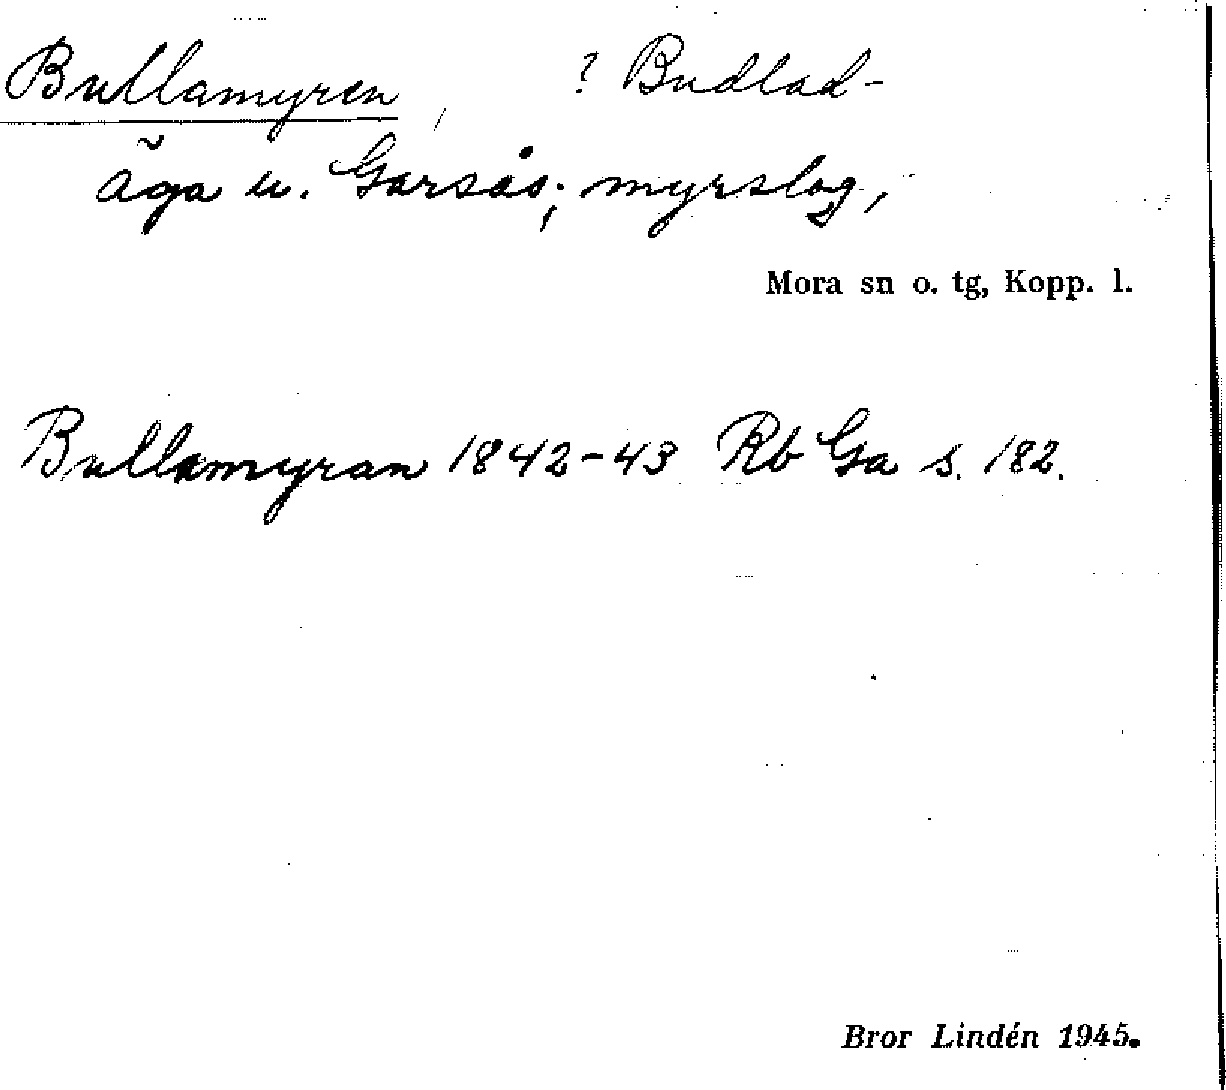 Bullamyren, ? Budlad-
äga u. Garsås; myrslog,
Mora sn o. tg, Kopp. l.
Bullamyran 1842-43 Rb Ga s. 182.
Bror Lindén 1945.